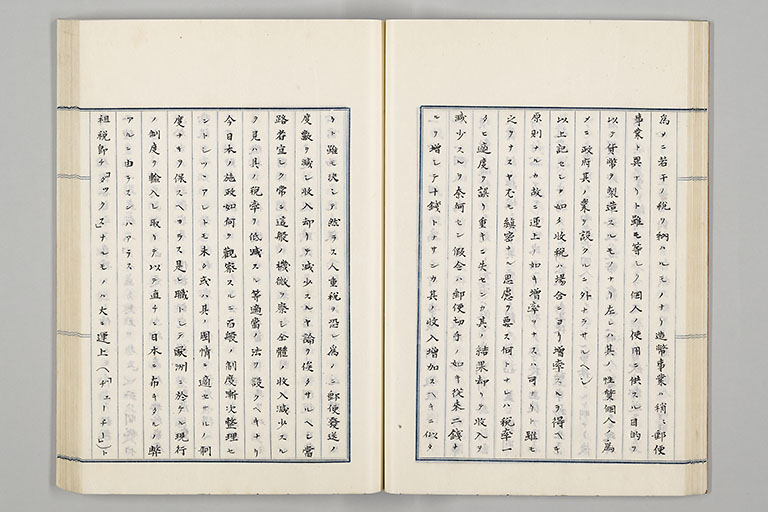 為メニ若干ノ税ヲ納ハルモノナリ造幣事業ハ稍〻郵便
事業ト異ナリト雖モ等シク個人ノ使用ニ供スル目的ヲ
以テ貨幣ヲ製造スルモノナリ左レハ其ノ性質個人ノ為
メニ政府其ノ業ヲ設クルニ外ナラサルヘシ
以上記セシヿノ如ク収税ハ場合ニヨリ増率スルヲ得ヘキ
原則ナルカ故ニ運上ノ如キ増率ヲナスハ可ナリト雖モ
之ヲナスヤ尤モ縝密ナル思慮ヲ要ス何トナレハ税率一
タヒ適度ヲ誤リ重キニ失センカ其ノ結果却リテ収入ヲ
減少スルヲ奈何セン假令ハ郵便切手ノ如キ従来二銭ナ
ルヲ増シテ十銭トナサンカ其ノ収入増加スヘキニ似タ
リト雖モ決シテ然ラス人重税ヲ恐レ為メニ郵便發送ノ
度數ヲ減シ収入却リテ減少スルヤ論ヲ俟タサルヘシ當
路者宜シク常ニ這般ノ機微ヲ察シ全體ノ収入減少スル
ヲ見ハ其ノ税率ヲ低減スル等適當ノ法ヲ設クヘキナリ
今日本ノ施政如何ヲ觀察スルニ百般ノ制度漸次整理セ
ントシツヽアレトモ未タ或ハ其ノ國情ニ適セサルノ制
度ナキヲ保スヘカラス是レ職トシテ歐洲ニ於ケル現行
ノ制度ヲ輸入シ取リテ以テ直チニ日本ニ布キタルノ弊
アルニ由ラスンハアラス
祖税即チ「タックス」ナルモノハ大ニ運上(ヘ「デューチー」)ト